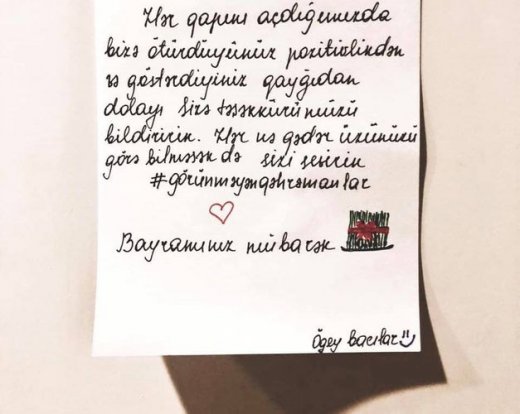 Hər qapını açdığımızda
bizə ötürdüyünüz pozitivlikdən
və göstərdiyiniz qayğıdan
dolayı Sizə təşəkkürümüzü
bildiririk. Hər nə qədər üzünüzü
görə bilməsək də sizi sevirik
#görünməyənqəhrəmanlar
Bayramınız mübarək
Ögey bacılar